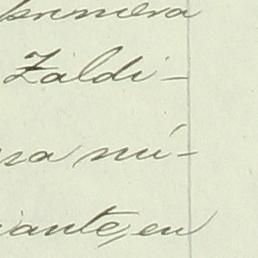 primera
Zaldi-
ra nú-
iante, en